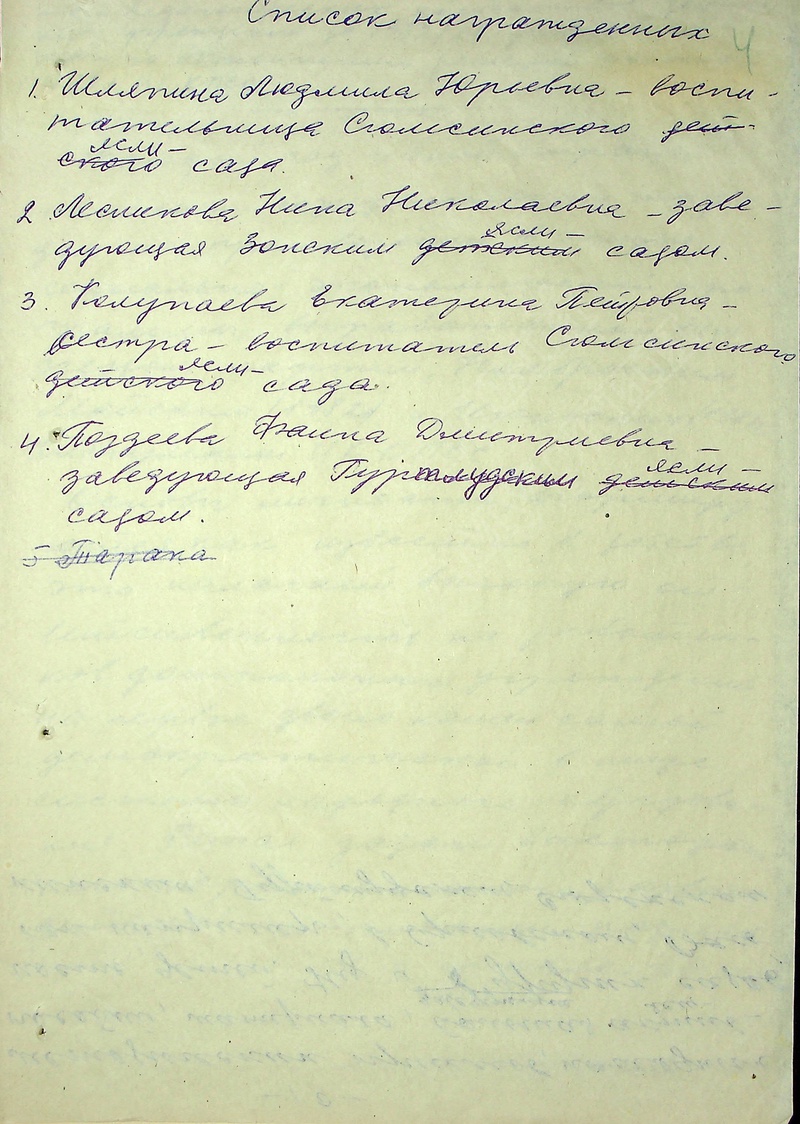 Список награжденных
4
1. Шляпина Людмила Юрьевна – воспи-
тательница Сюмсинского дет-
ясли –
ского сада.
2. Лесникова Нина Николаевна – заве-
ясли –
дующая Зонским детским садом.
3. Колупаева Екатерина Петровна –
сестра – воспитатель Сюмсинского
ясли –
детского сада.
4. Поздеева Фаина Дмитриевна –
ясли –
заведующая детским
садом.
5 Тарака